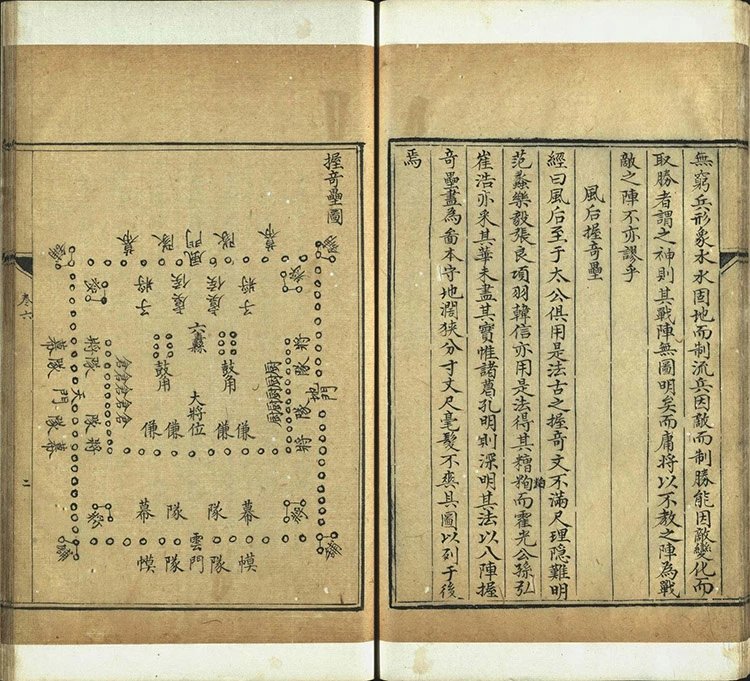 無窮兵形象水水因地而制流兵因敵而制勝能因敵變化而
取勝者謂之神則其戰陣無圖明矣而庸將以不教之陣為戰
敵之陣不亦謬乎
風后握奇壘
經曰風后至于太公俱用是法古之握奇文不滿尺理隱難明
范蠡樂毅張良項羽韓信亦用是法得其糟粕而霍光公孫弘
崔浩亦采其華未盡其實惟諸葛孔明則深明其法以八陣握
奇壘畫為啚本守地濶狹分寸丈尺毫髮不爽具圖以列于後
焉
握奇壘圖
幕 隊 風門 隊 幕
子將 虞候 虞候 子將
六纛
鼓角
鼓角
大將位
傔 傔 傔 傔
將 隊 隊 將
地門
倉倉倉倉倉
將 隊 隊 將
幕 隊 天門 隊 幕
幕 隊 隊 幕
雲門
幙 隊 隊 幙
卷六
二